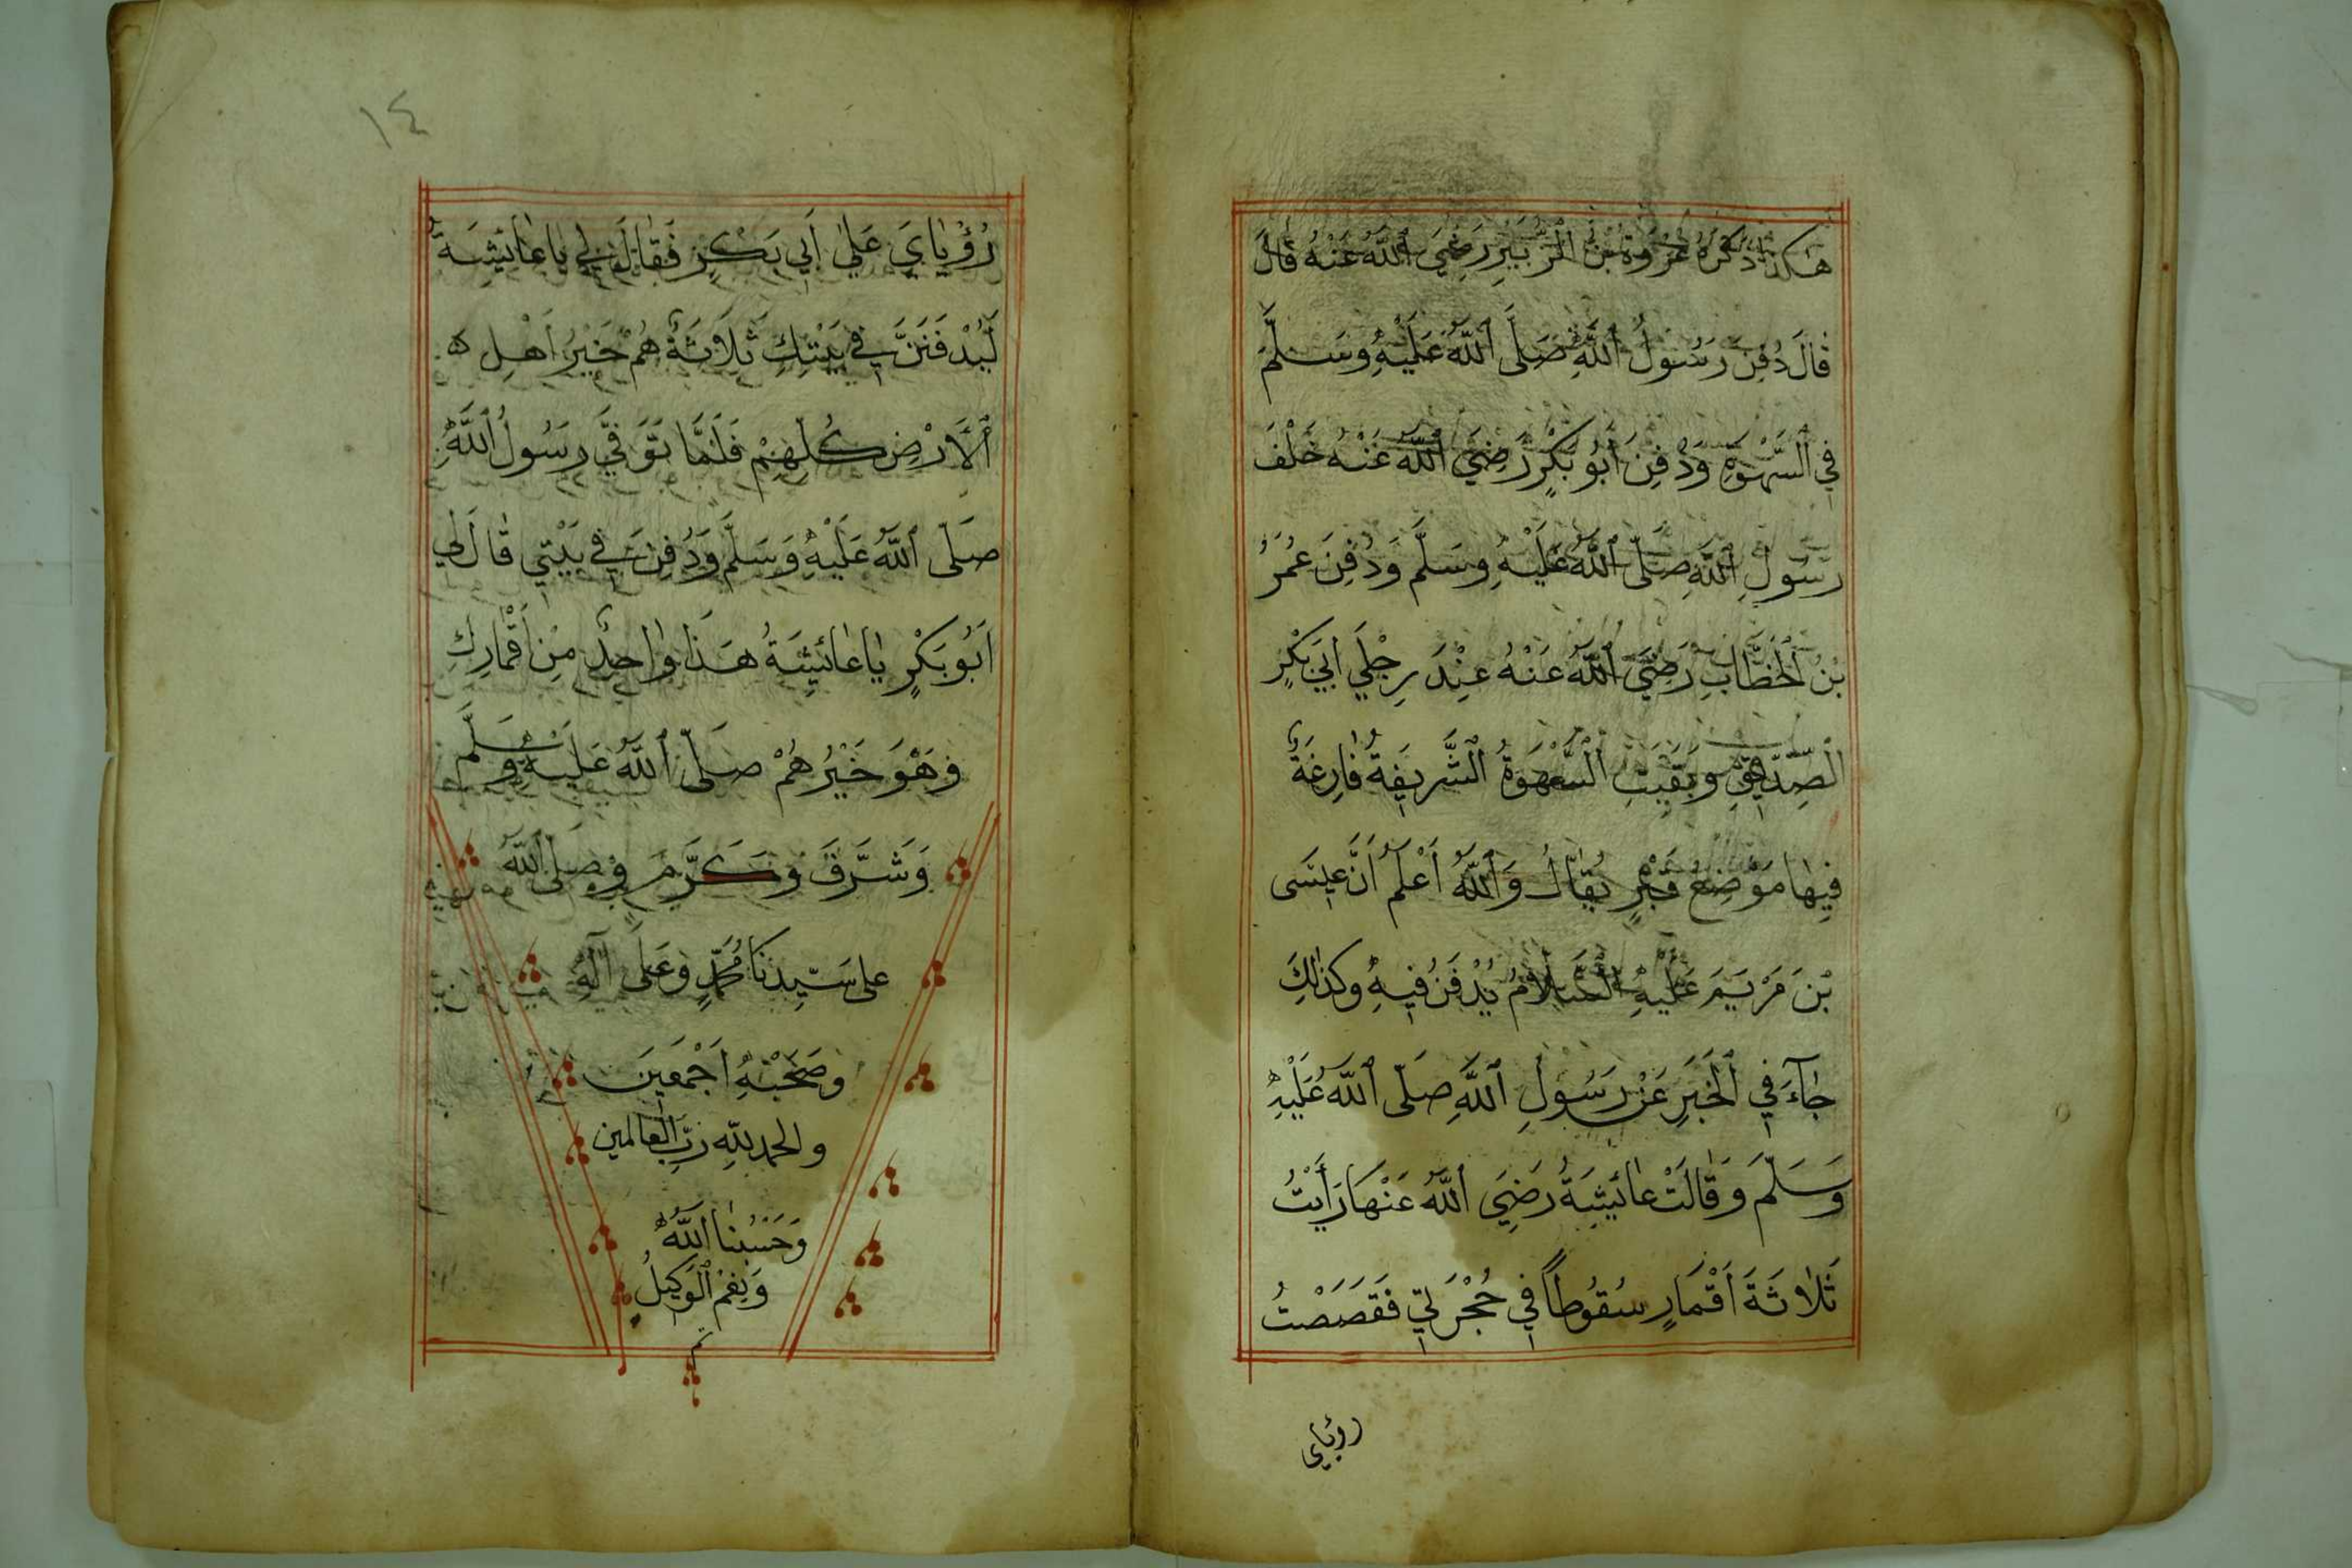 هٰكَذَا ذَكَرَهُ عُرْوَةُ بْنُ الزُّبَيْرِ رَضِيَ اللّٰهُ عَنْهُ قَالَ
قَالَ دُفِنَ رَسُولُ اللّٰهِ صَلَّى اللّٰهُ عَلَيْهِ وَسَلَّمَ
فِي السَّهْوَةِ وَدُفِنَ أَبُو بَكْرٍ رَضِيَ اللّٰهُ عَنْهُ خَلْفَ
رَسُولِ اللّٰهِ صَلَّى اللّٰهُ عَلَيْهِ وَسَلَّمَ وَدُفِنَ عُمَرُ
بْنُ الْخَطَّابِ رَضِيَ اللّٰهُ عَنْهُ عِنْدَ رِجْلَيْ أَبِي بَكْرٍ
الصِّدِّيقِ وَبَقِيَتِ السَّهْوَةُ الشَّرِيفَةُ فَارِغَةً
فِيهَا مَوْضِعُ قَبْرٍ يُقَالُ وَاللّٰهُ أَعْلَمُ أَنَّ عِيسَى
بْنَ مَرْيَمَ عَلَيْهِ السَّلَامُ يُدْفَنُ فِيهِ وَكَذٰلِكَ
جَآءَ فِي الْخَبَرِ عَنْ رَسُولِ اللّٰهِ صَلَّى اللّٰهُ عَلَيْهِ
وَسَلَّمَ وَقَالَتْ عَائِشَةُ رَضِيَ اللّٰهُ عَنْهَا رَأَيْتُ
ثَلَاثَةَ أَقْمَارٍ سُقُوطًا فِي حُجْرَتِي فَقَصَصْتُ
رؤياي
١٤
رُؤْيَايَ عَلَى أَبِي بَكْرٍ فَقَالَ لِي يَا عَائِشَةُ
لَيُدْفَنَنَّ فِي بَيْتِكِ ثَلَاثَةٌ هُمْ خَيْرُ أَهْلِ
الْأَرْضِ كُلِّهِمْ فَلَمَّا تُوُفِّيَ رَسُولُ اللّٰهِ
صَلَّى اللّٰهُ عَلَيْهِ وَسَلَّمَ وَدُفِنَ فِي بَيْتِي قَالَ لِي
أَبُو بَكْرٍ يَا عَائِشَةُ هَذَا وَاحِدٌ مِنْ أَقْمَارِكِ
وَهُوَ خَيْرُهُمْ صَلَّى اللّٰهُ عَلَيْهِ وَسَلَّمَ
وَشَرَّفَ وَكَرَّمَ وَصَلَّى اللّٰهُ
عَلَى سَيِّدِنَا مُحَمَّدٍ وَعَلَى آلِهِ
وَصَحْبِهِ أَجْمَعِينَ
والحمد لله رَبِّ العالمين
وَحَسْبُنَا اللّٰهُ
وَنِعْمَ الْوَكِيلُ
تم